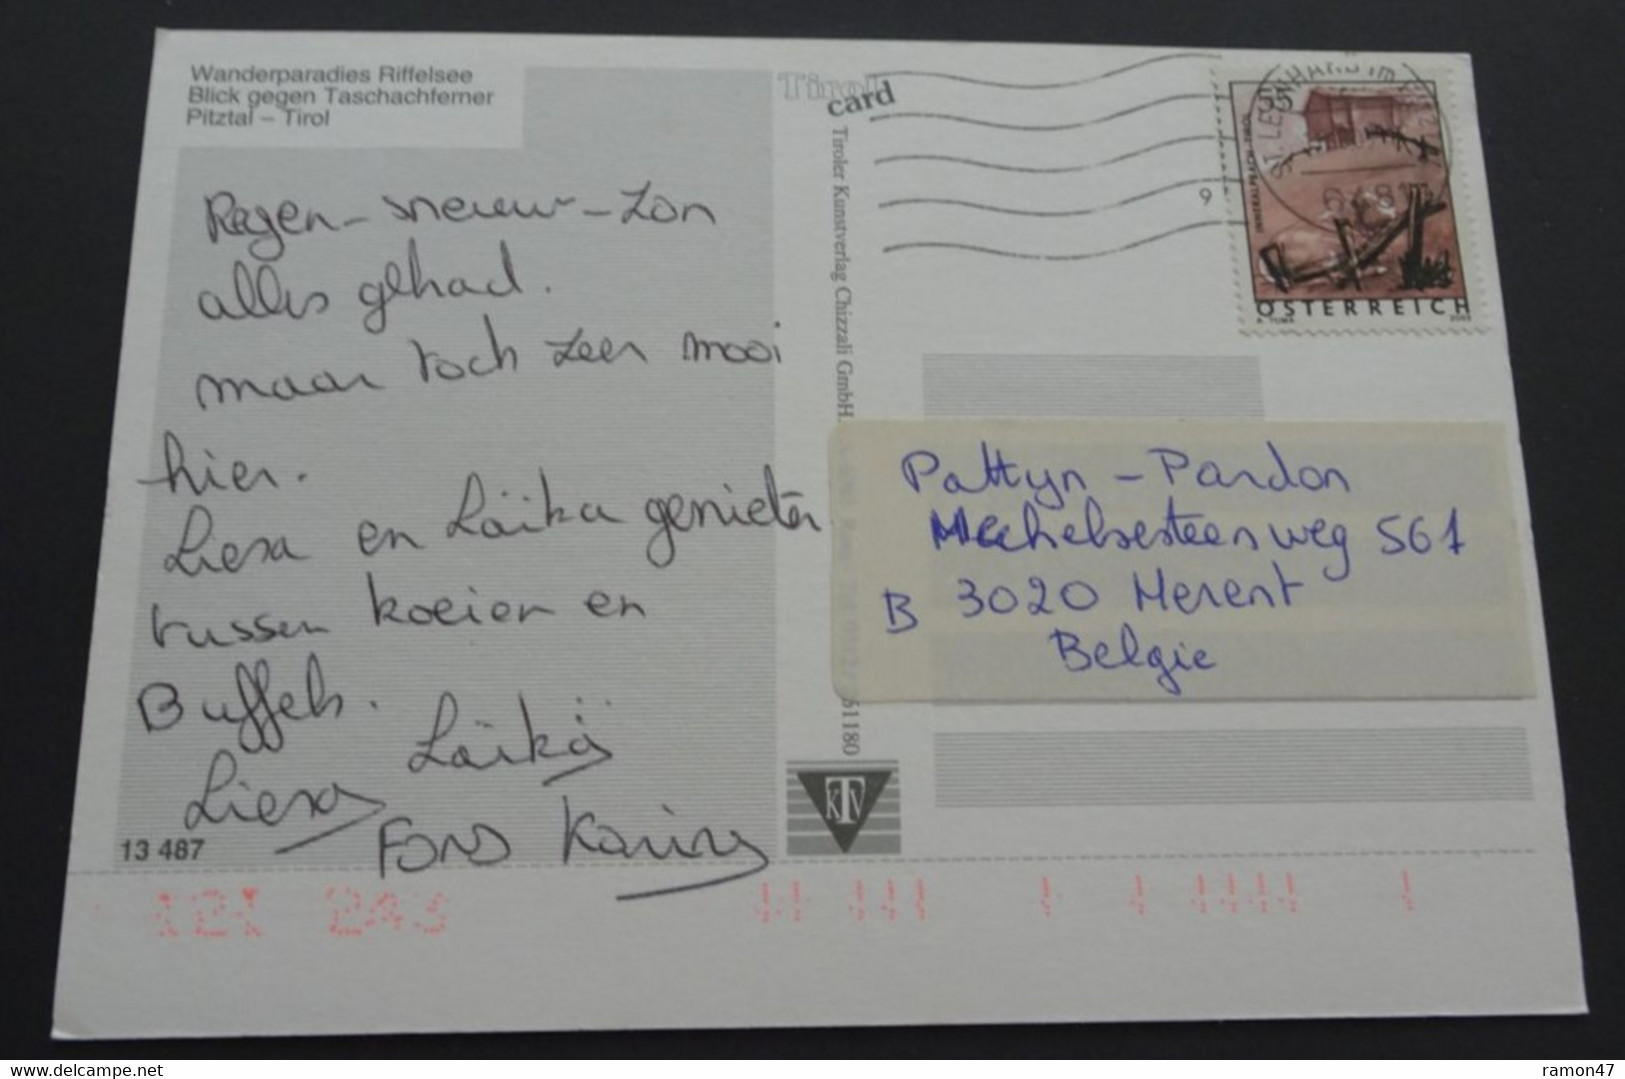 Wanderparadies Riffelsee
Blick gegen Taschachferner
Pitztal – Tirol
Regen – sneeuw – zon
alles gehad.
maar toch zeer mooi
hier.
Liesa en Laïka genieten
tussen koeien en
Buffels.
Liesa Laïka
Fons Karin
13 487
Tirol
card
Tiroler Kunstverlag Chizzali GmbH.
61180
KTV
ST. LEONHARD im
9
INNERALPBACH · TIROL
ÖSTERREICH
A. TUMA
Pattyn – Pardon
Mechelsesteenweg 561
B 3020 Herent
Belgie
121 243
delcampe.net
ramon47